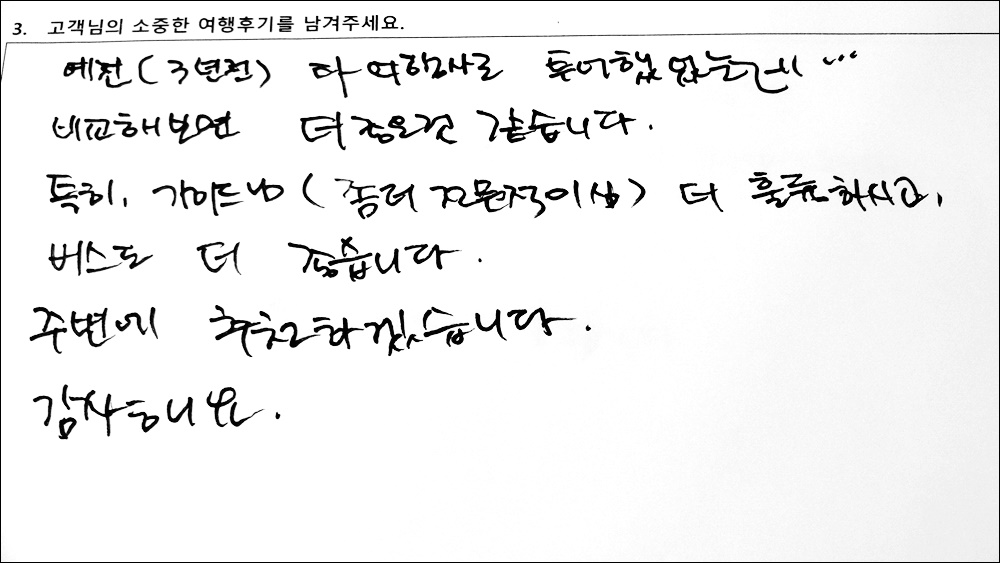 3. 고객님의 소중한 여행후기를 남겨주세요.
예전(3년전) 타 여행사로 투어했었는데...
비교해보면 더 좋은것 같습니다.
특히, 가이드님(좀더 전문적이심) 더 훌륭하시고,
버스도 더 좋습니다.
주변에 추천하겠습니다.
감사합니다.